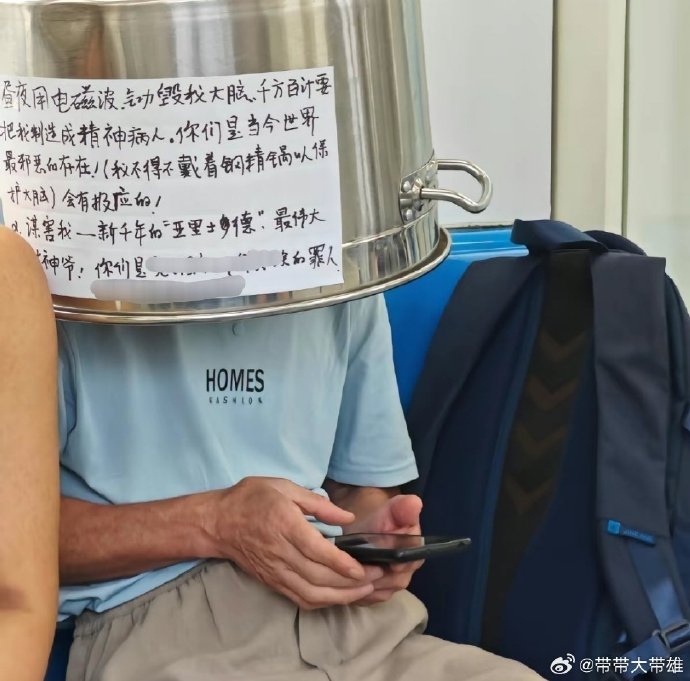 昼夜用电磁波、气功毁我大脑、千方百计要
把我制造成精神病人。你们是当今世界
最邪恶的存在！(我不得不戴着钢精锅以保
护大脑)会有报应的！
谋害我—新千年的"亚里士多德"、最伟大
神爷！你们是 的罪人
HOMES
FASHION
@带带大带雄